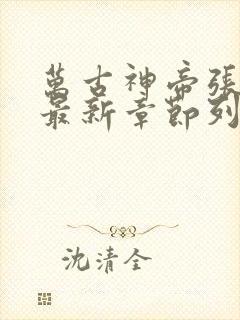 萬古神帝張
最新章節列
沈清全